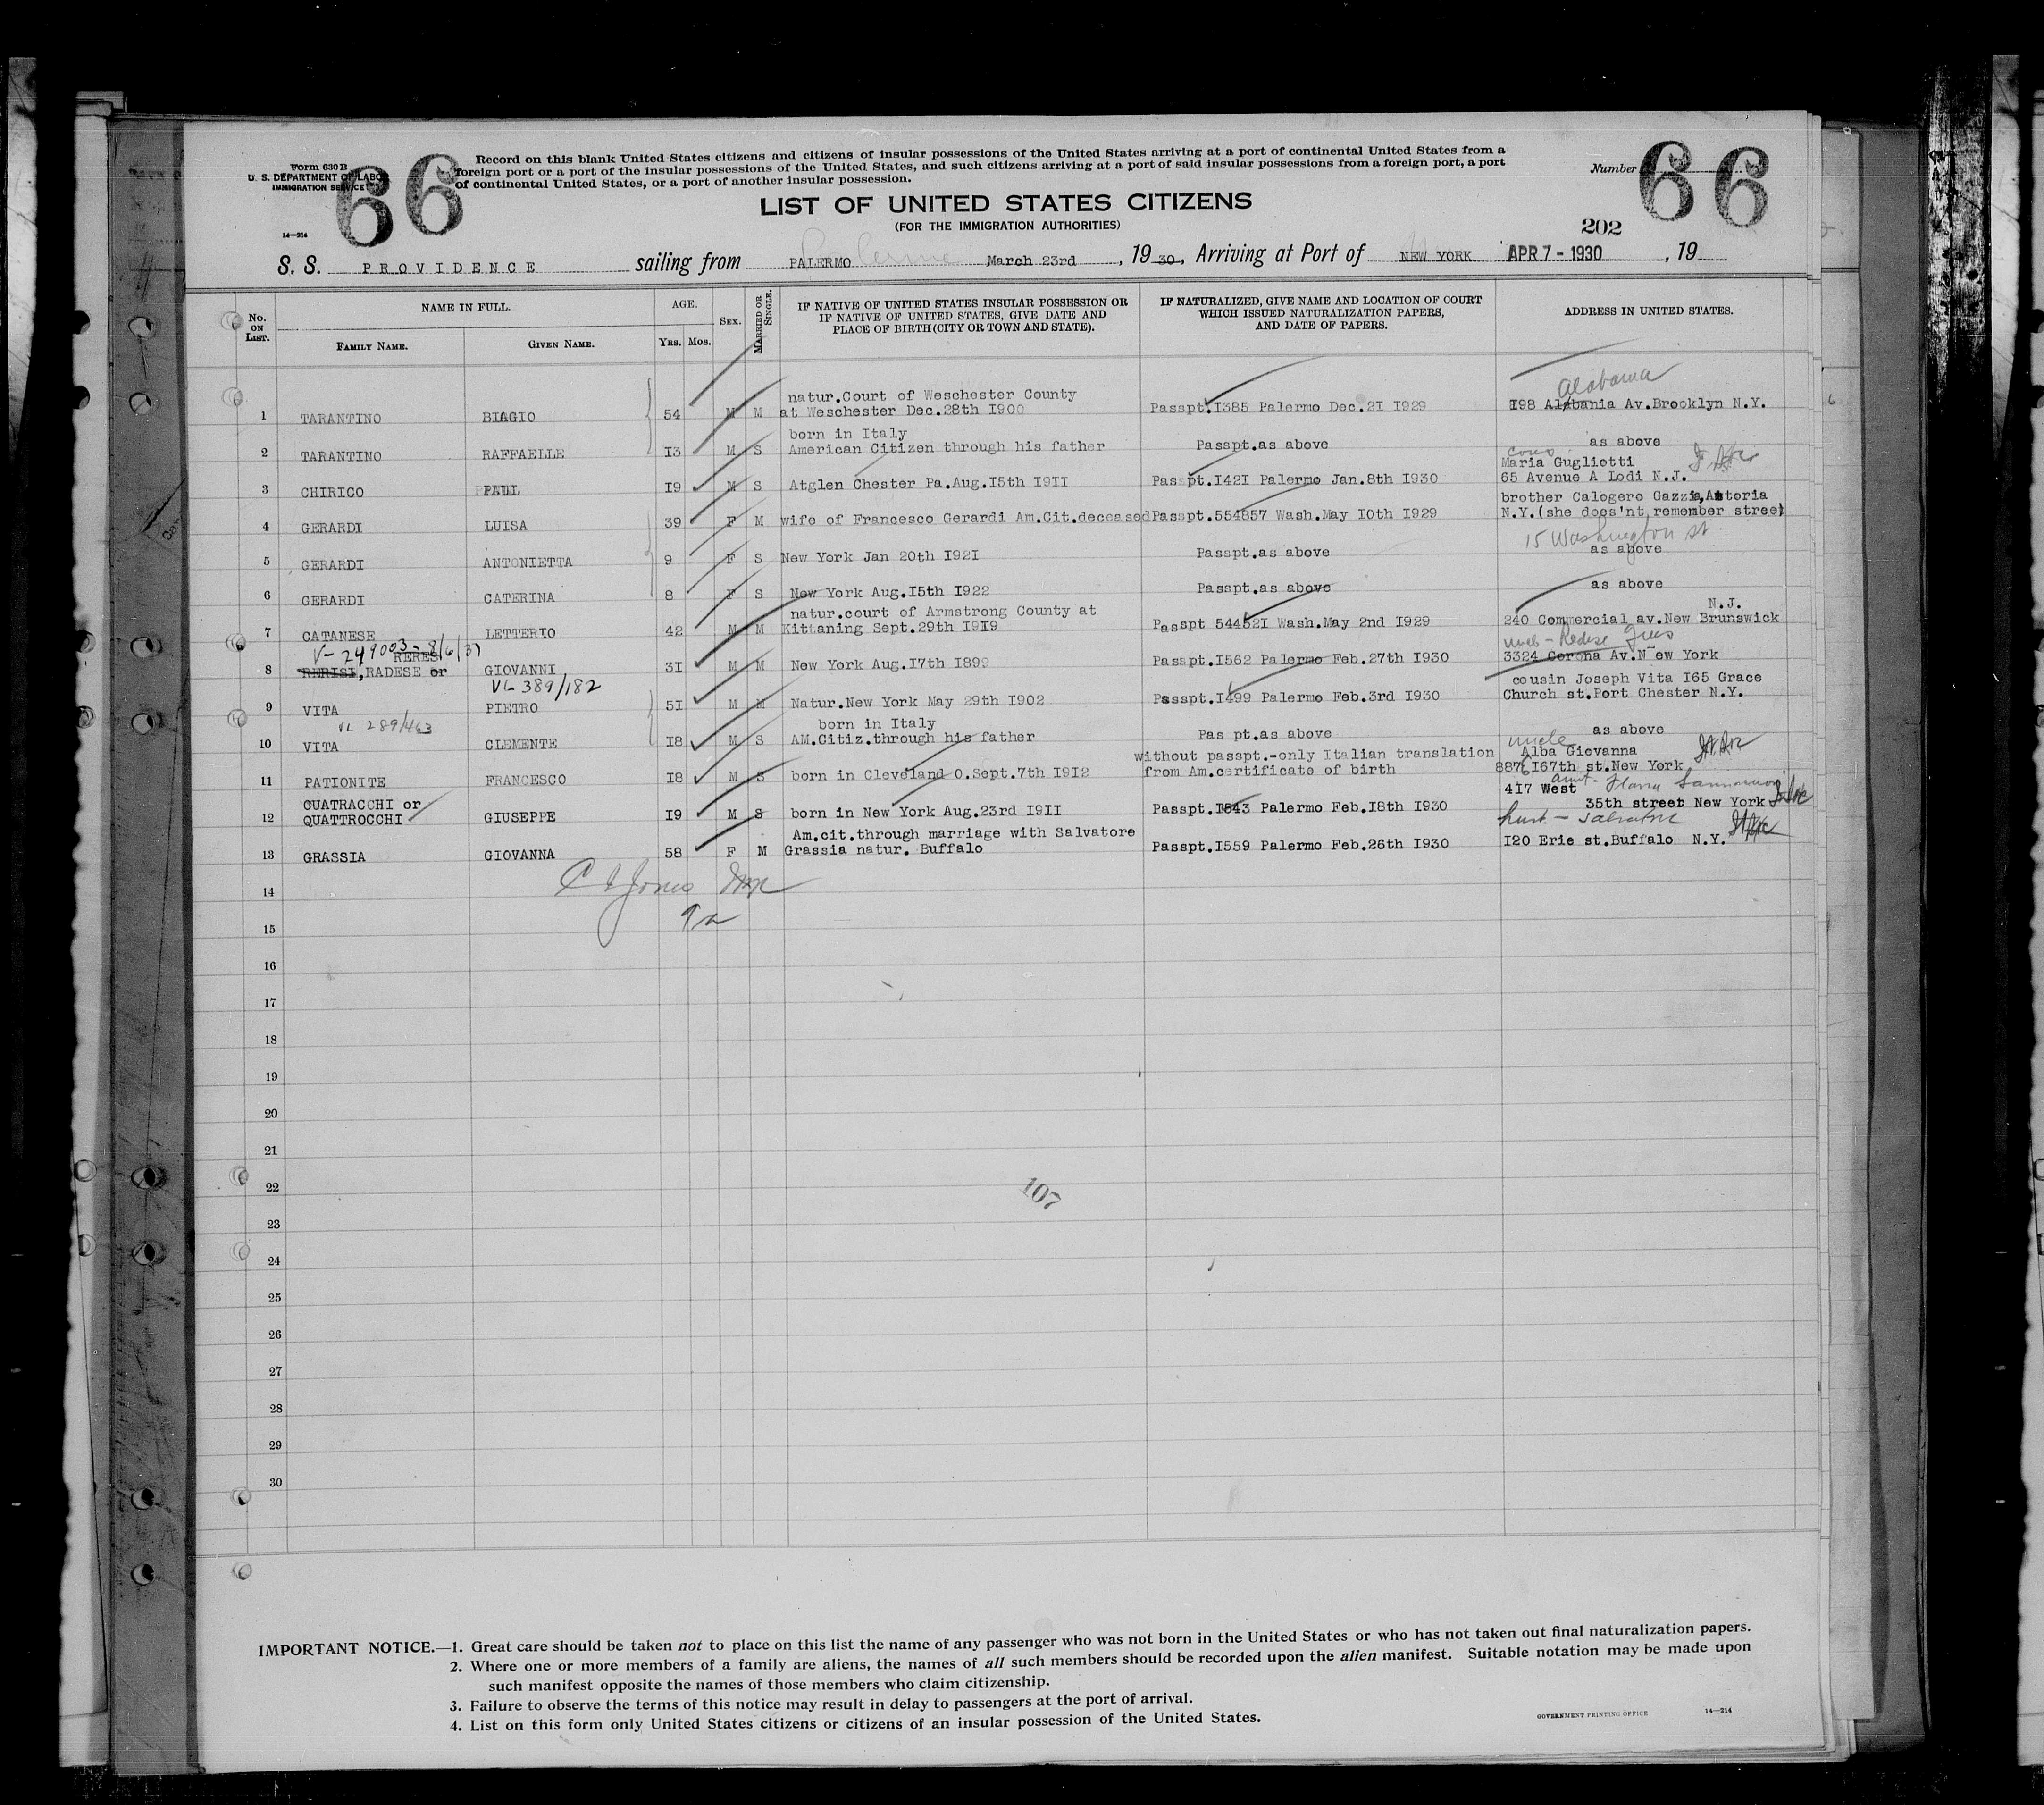 Form 630 B
U. S. DEPARTMENT OF LABOR
IMMIGRATION SERVICE
14—214
66
Record on this blank United States citizens and citizens of insular possessions of the United States arriving at a port of continental United States from a
foreign port or a port of the insular possessions of the United States, and such citizens arriving at a port of said insular possessions from a foreign port, a port
of continental United States, or a port of another insular possession.
Number
66
LIST OF UNITED STATES CITIZENS
(FOR THE IMMIGRATION AUTHORITIES)
202
S. S. PROVIDENCE sailing from PALERMO March 23rd, 19 30, Arriving at Port of NEW YORK APR 7 - 1930, 19
No. ON LIST.
NAME IN FULL.
FAMILY NAME.
GIVEN NAME.
AGE.
YRS. MOS.
SEX.
MARRIED OR SINGLE.
IF NATIVE OF UNITED STATES INSULAR POSSESSION OR
IF NATIVE OF UNITED STATES, GIVE DATE AND
PLACE OF BIRTH (CITY OR TOWN AND STATE).
IF NATURALIZED, GIVE NAME AND LOCATION OF COURT
WHICH ISSUED NATURALIZATION PAPERS,
AND DATE OF PAPERS.
ADDRESS IN UNITED STATES.
Alabama
natur.Court of Weschester County
1 TARANTINO BIAGIO 54 M M at Weschester Dec.28th I900 Passpt.I385 Palermo Dec.2I I929 I98 Alabania Av.Brooklyn N.Y.
born in Italy
2 TARANTINO RAFFAELLE I3 M S American Citizen through his father Passpt.as above as above
cous
Maria Gugliotti
3 CHIRICO PAUL I9 M S Atglen Chester Pa.Aug.I5th I9II Passpt.I42I Palermo Jan.8th I930 65 Avenue A Lodi N.J.
brother Calogero Gazzia,Astoria
4 GERARDI LUISA 39 F M wife of Francesco Gerardi Am.Cit.deceased Passpt.554857 Wash.May I0th I929 N.Y.(she does'nt remember street
15 Washington st
5 GERARDI ANTONIETTA 9 F S New York Jan 20th I92I Passpt.as above as above
6 GERARDI CATERINA 8 F S New York Aug.I5th I922 Passpt.as above as above
natur.court of Armstrong County at
N.J.
7 CATANESE LETTERIO 42 M M Kittaning Sept.29th I9I9 Passpt 54452I Wash.May 2nd I929 240 Commercial av.New Brunswick
V- 249003 - 8/6/37
RERES
8 RERISI,RADESE or GIOVANNI 3I M M New York Aug.I7th I899 Passpt.I562 Palermo Feb.27th I930 3324 Corona Av.N ew York
VL 389/182
cousin Joseph Vita I65 Grace
9 VITA PIETRO 5I M M Natur.New York May 29th I902 Passpt.I499 Palermo Feb.3rd I930 Church st.Port Chester N.Y.
VL 289/463
born in Italy
10 VITA CLEMENTE I8 M S AM.Citiz.through his father Pas pt.as above as above
uncle
without passpt.-only Italian translation Alba Giovanna
11 PATIONITE FRANCESCO I8 M S born in Cleveland O.Sept.7th I9I2 from Am.certificate of birth 8876 I67th st.New York
aunt-
CUATRACCHI or
4I7 West
12 QUATTROCCHI GIUSEPPE I9 M S born in New York Aug.23rd I9II Passpt.I843 Palermo Feb.I8th I930 35th street New York
husb - Salvatore
Am.cit.through marriage with Salvatore
13 GRASSIA GIOVANNA 58 F M Grassia natur. Buffalo Passpt.I559 Palermo Feb.26th I930 I20 Erie st.Buffalo N.Y.
14
15
16
17
18
19
20
21
22
107
23
24
25
26
27
28
29
30
IMPORTANT NOTICE.—1. Great care should be taken not to place on this list the name of any passenger who was not born in the United States or who has not taken out final naturalization papers.
2. Where one or more members of a family are aliens, the names of all such members should be recorded upon the alien manifest. Suitable notation may be made upon
such manifest opposite the names of those members who claim citizenship.
3. Failure to observe the terms of this notice may result in delay to passengers at the port of arrival.
4. List on this form only United States citizens or citizens of an insular possession of the United States.
GOVERNMENT PRINTING OFFICE 14—214